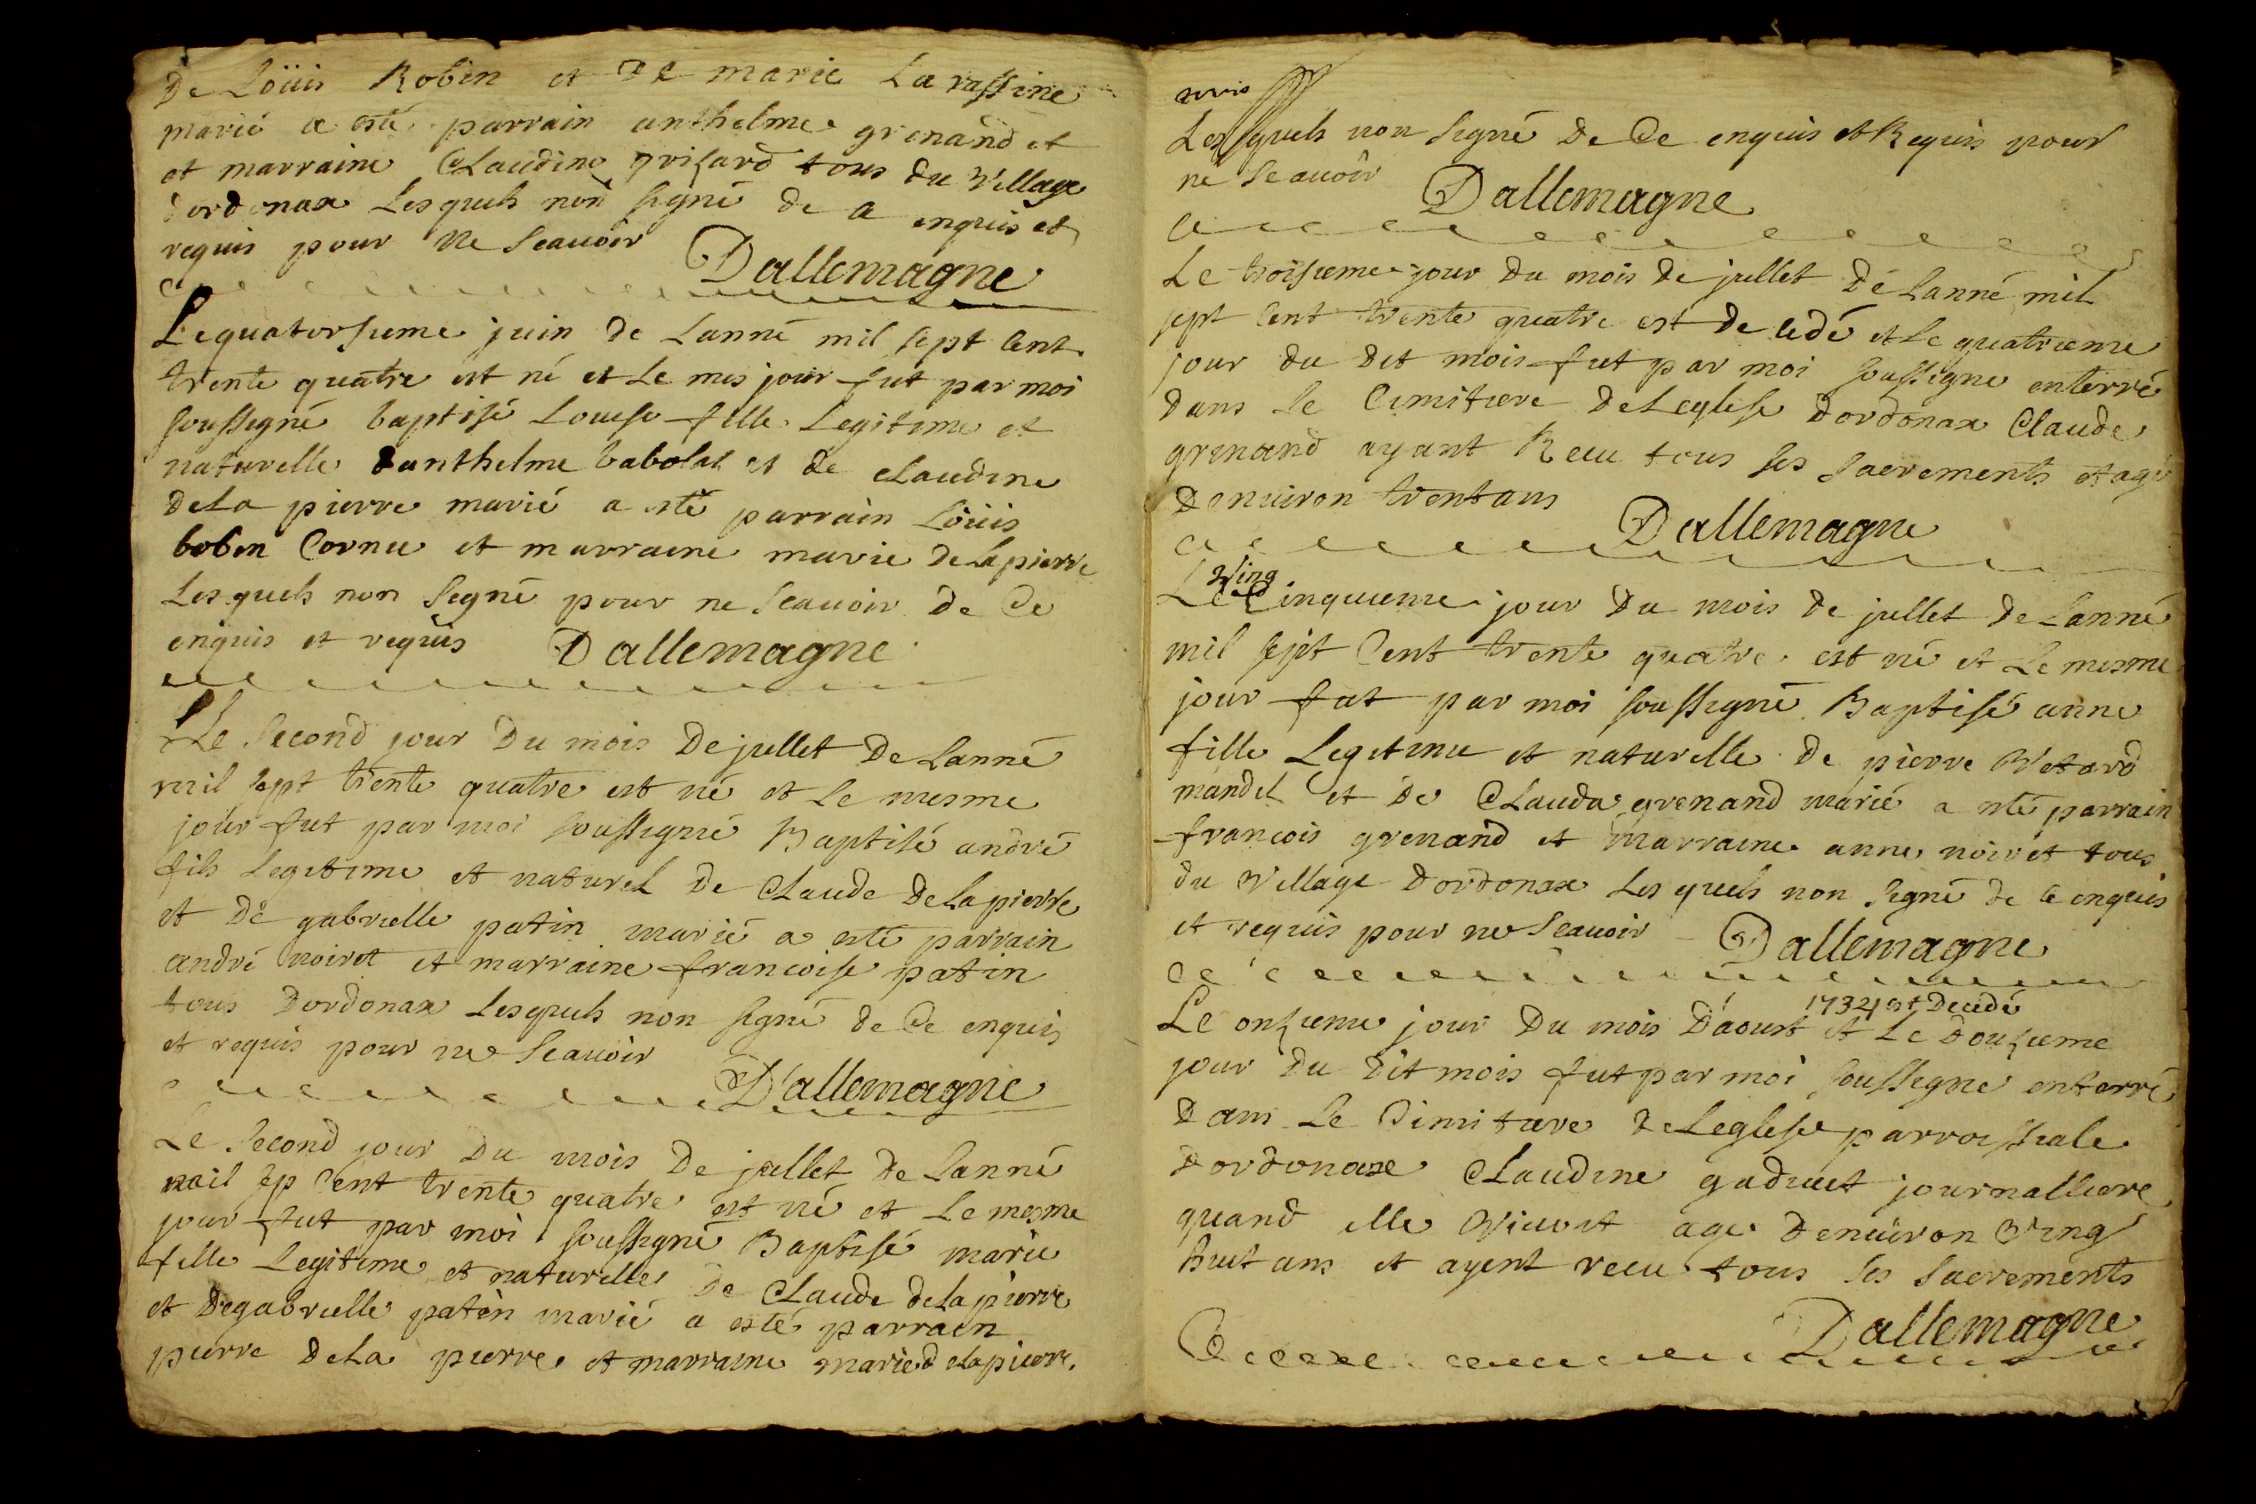 De Loüis Robin et De marie La rassine
marié a esté parrain anthelme grenand et
et marraine Claudine grisard tous du village
dordonax Lesquels non signé de a enquis et
requis pour ne scauoir Dallemagne
Le quatorsieme juin de Lanné mil sept Cent
trente quatre est né et Le mes jour fut par moi
soussigné baptisé Louise fille Legitime et
naturelle danthelme babolat et de claudine
de La pierre marié a esté parrain Loüis
bobin Cornu et marraine marie de La pierre
Lesquels non signé pour ne scauoir de Ce
enquis et requis Dallemagne
Le second jour Du mois De jullet De Lanné
mil sept trente quatre est né et Le mesme
jour fut par moi soussigné Baptisé andré
fils Legitime et naturel De Claude De La pierre
et De gabrielle patin marié a esté parrain
andré noiret et marraine francoise patin
tous Dordonax Lesquels non signé de Ce enquis
et requis pour ne scauoir
D'allemagne
Le second jour Du mois De jullet de Lanné
mil sep Cent trente quatre est né et Le mesme
jour fut par moi soussigné Baptisé marie
fille Legitime et naturelle De Claude de La pierre
et De gabrielle patin marié a esté parrain
pierre De La pierre et marraine marie d eLa pierre.
Lesquels non signé De Ce enquis et Requis pour
ne scauoir Dallemagne
Le troisieme jour Du mois De jullet Dé Lanné mil
sept Cent trente quatre est De cedé et Le quatrieme
jour du dit mois fut par moi soussigne enterré
Dans Le Cimitiere De Leglise Dordonax Claude
grenand ayant Receu tous ses sacrements et agé
Denuiron trent ans Dallemagne
Le ving Cinquieme jour Du mois De jullet De Lanné
mil sept Cent trente quatre est né et Le mesme
jour fut par moi soussigné Baptisé anne
fille Legitime et naturelle De pierre Vetard
mandel et De Clauda grenand marié a esté parrain
francois grenand et marraine anne noiret tous
du Village Dordonax Les quels non signé de Ce enquis
et requis pour ne scauoir Dallemagne
Le onzieme jour Du mois D'aoust 1734 est Decedé et Le Douzieme
jour Du Dit mois fut par moi soussigne enterré
Dans Le Cimitiere De Leglise parroissiale
Dordonaxe Claudine gaduet journalliere
quand elle Viuoit age Denuiron Ving
huit ans et ayent receu tous ses sacrements
Dallemagne